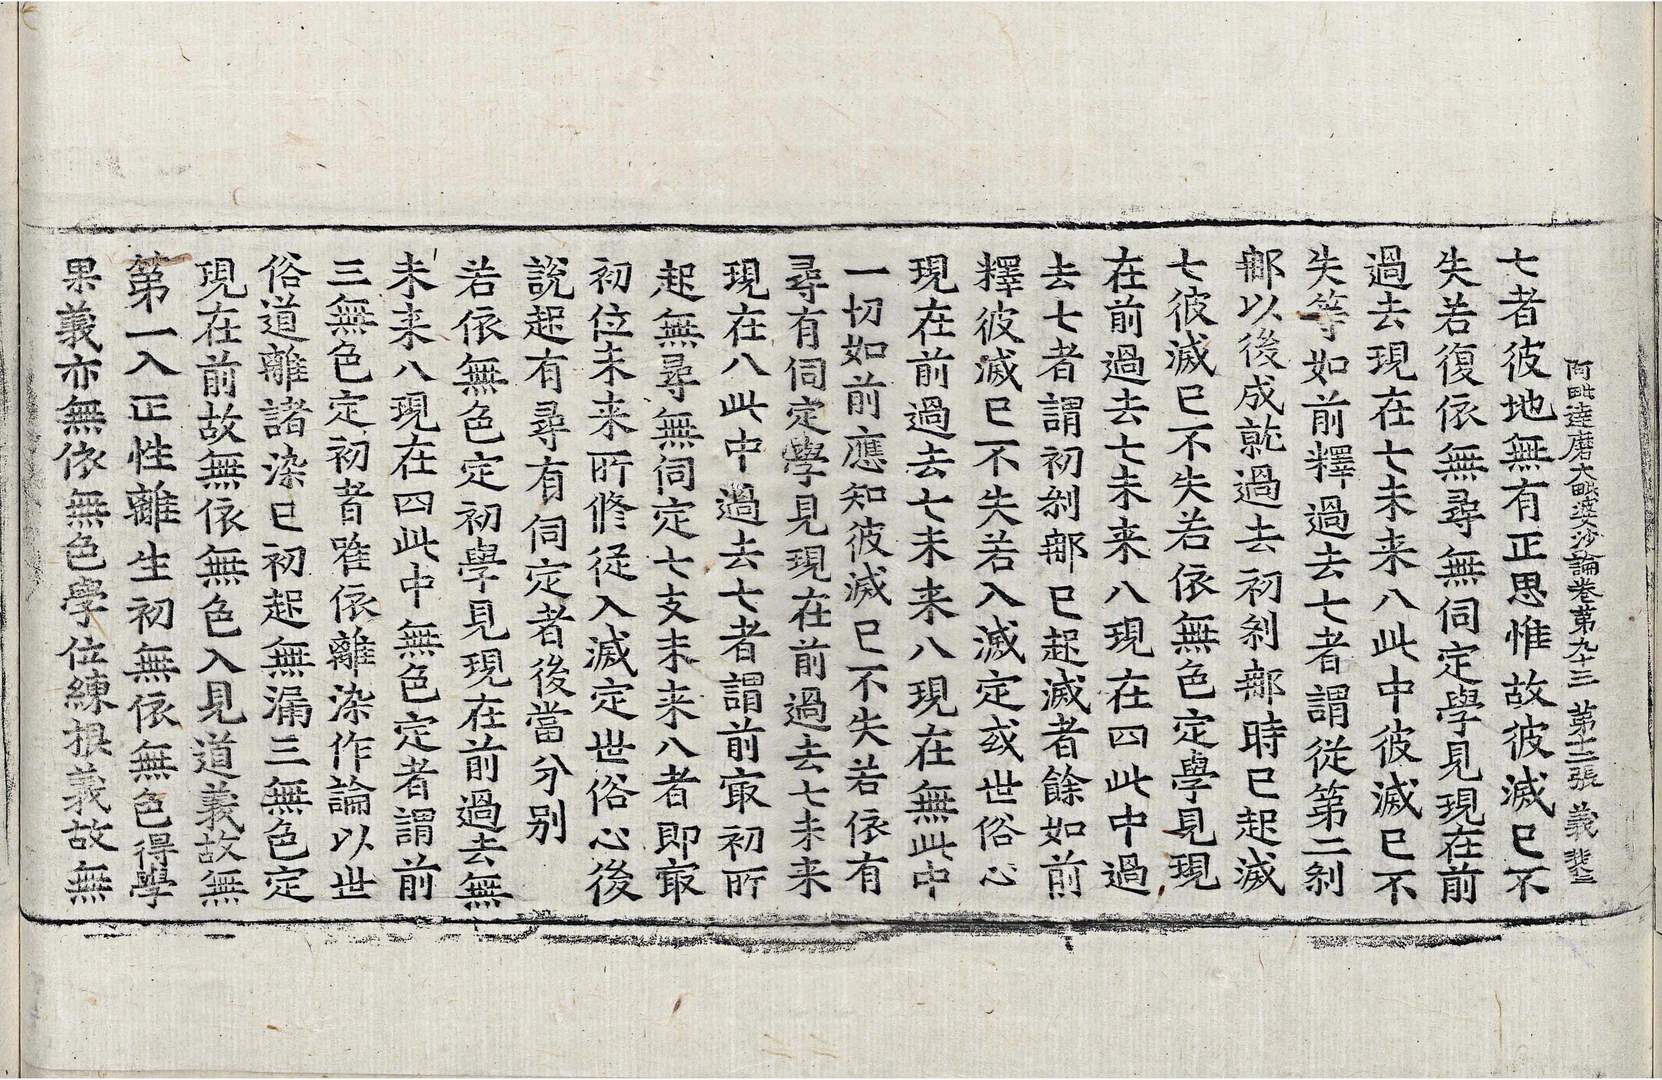 阿毗達磨大毗婆沙論卷第九十三 第十二張 義
七者彼地無有正思惟故彼滅已不
失若復依無尋無伺定學見現在前
過去現在七未来八此中彼滅已不
失等如前釋過去七者謂從第二刹
郍以後成就過去初刹郍時已起滅
七彼滅已不失若依無色定學見現
在前過去七未来八現在四此中過
去七者謂初刹郍已起滅者餘如前
釋彼滅已不失若入滅定或世俗心
現在前過去七未来八現在無此中
一切如前應知彼滅已不失若依有
尋有伺定學見現在前過去七未来
現在八此中過去七者謂前㝡初所
起無尋無伺定七支未来八者即㝡
初位未来所修從入滅定世俗心後
說起有尋有伺定者後當分别
若依無色定初學見現在前過去無
未来八現在四此中無色定者謂前
三無色定初者唯依離染作論以世
俗道離諸染已初起無漏三無色定
現在前故無依無色入見道義故無
第一入正性離生初無依無色得學
果義亦無依無色學位練根義故無